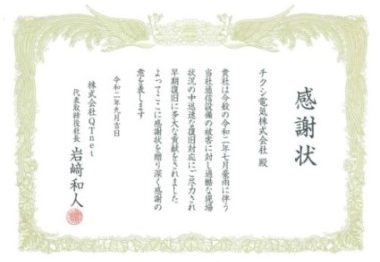 感謝状
チクシ電気株式会社 殿
貴社は今般の令和二年七月豪雨に伴う
当社通信設備の被害に対し過酷な現場
状況の中迅速な復旧対応にご尽力され
早期復旧に多大な貢献をされました
よってここに感謝状を贈り深く感謝の
意を表します
令和二年九月吉日
株式会社QTnet
代表取締役社長 岩﨑和人